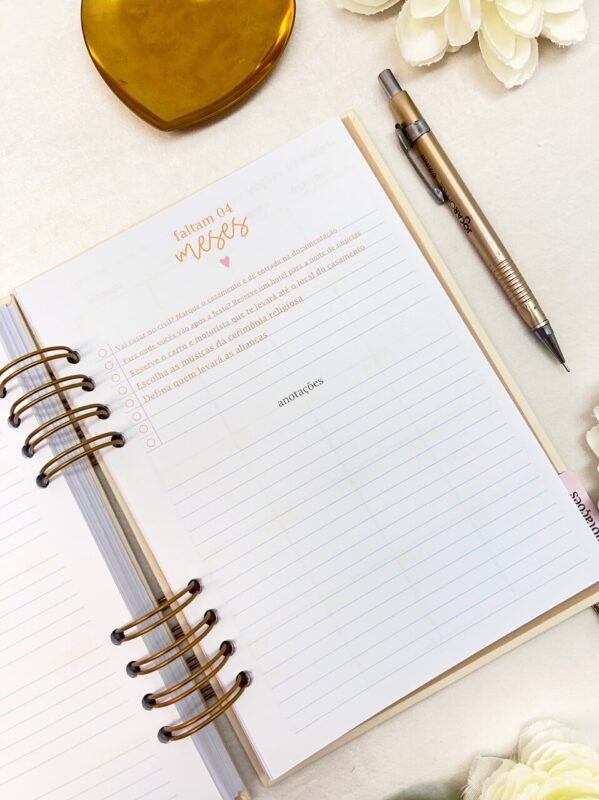 faltam 04
meses
Vai casar no civil? Marque o casamento e dê entrada na documentação
Para onde vocês vão após a festa? Reserve um hotel para a noite de núpcias
Reserve o carro e motorista que te levará até o local do casamento
Escolha as músicas da cerimônia religiosa
Defina quem levará as alianças
anotações
anotações